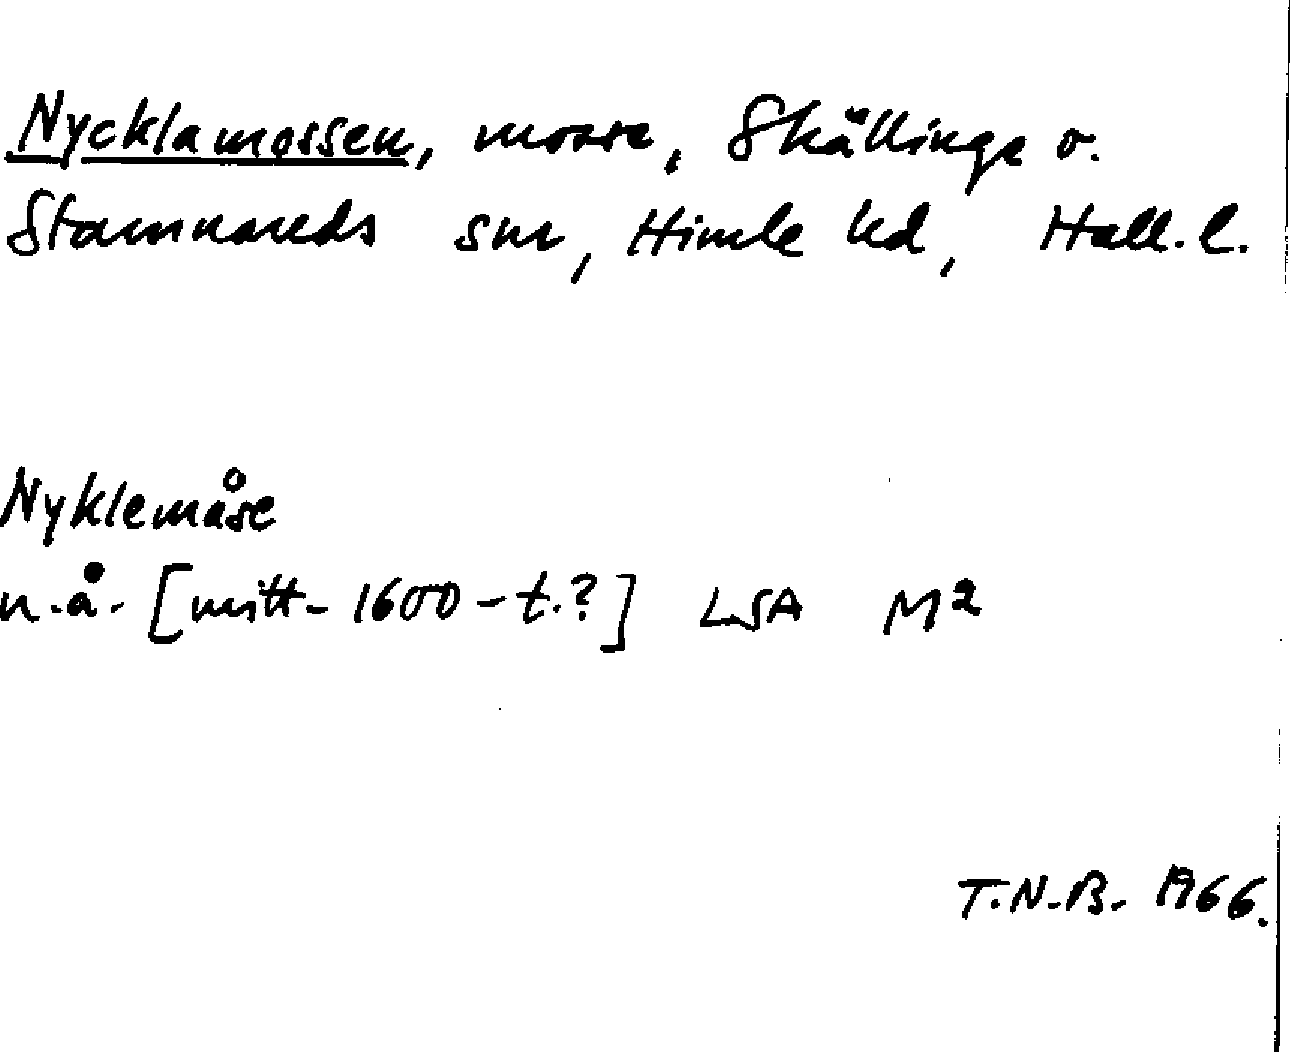 Nycklamossen, mosse, Skällinge o.
Stamnareds snr, Himle hd, Hall. l.
Nyklemåse
u.å. [mitt- 1600-t.?] LSA M2
T.N.B. 1966.